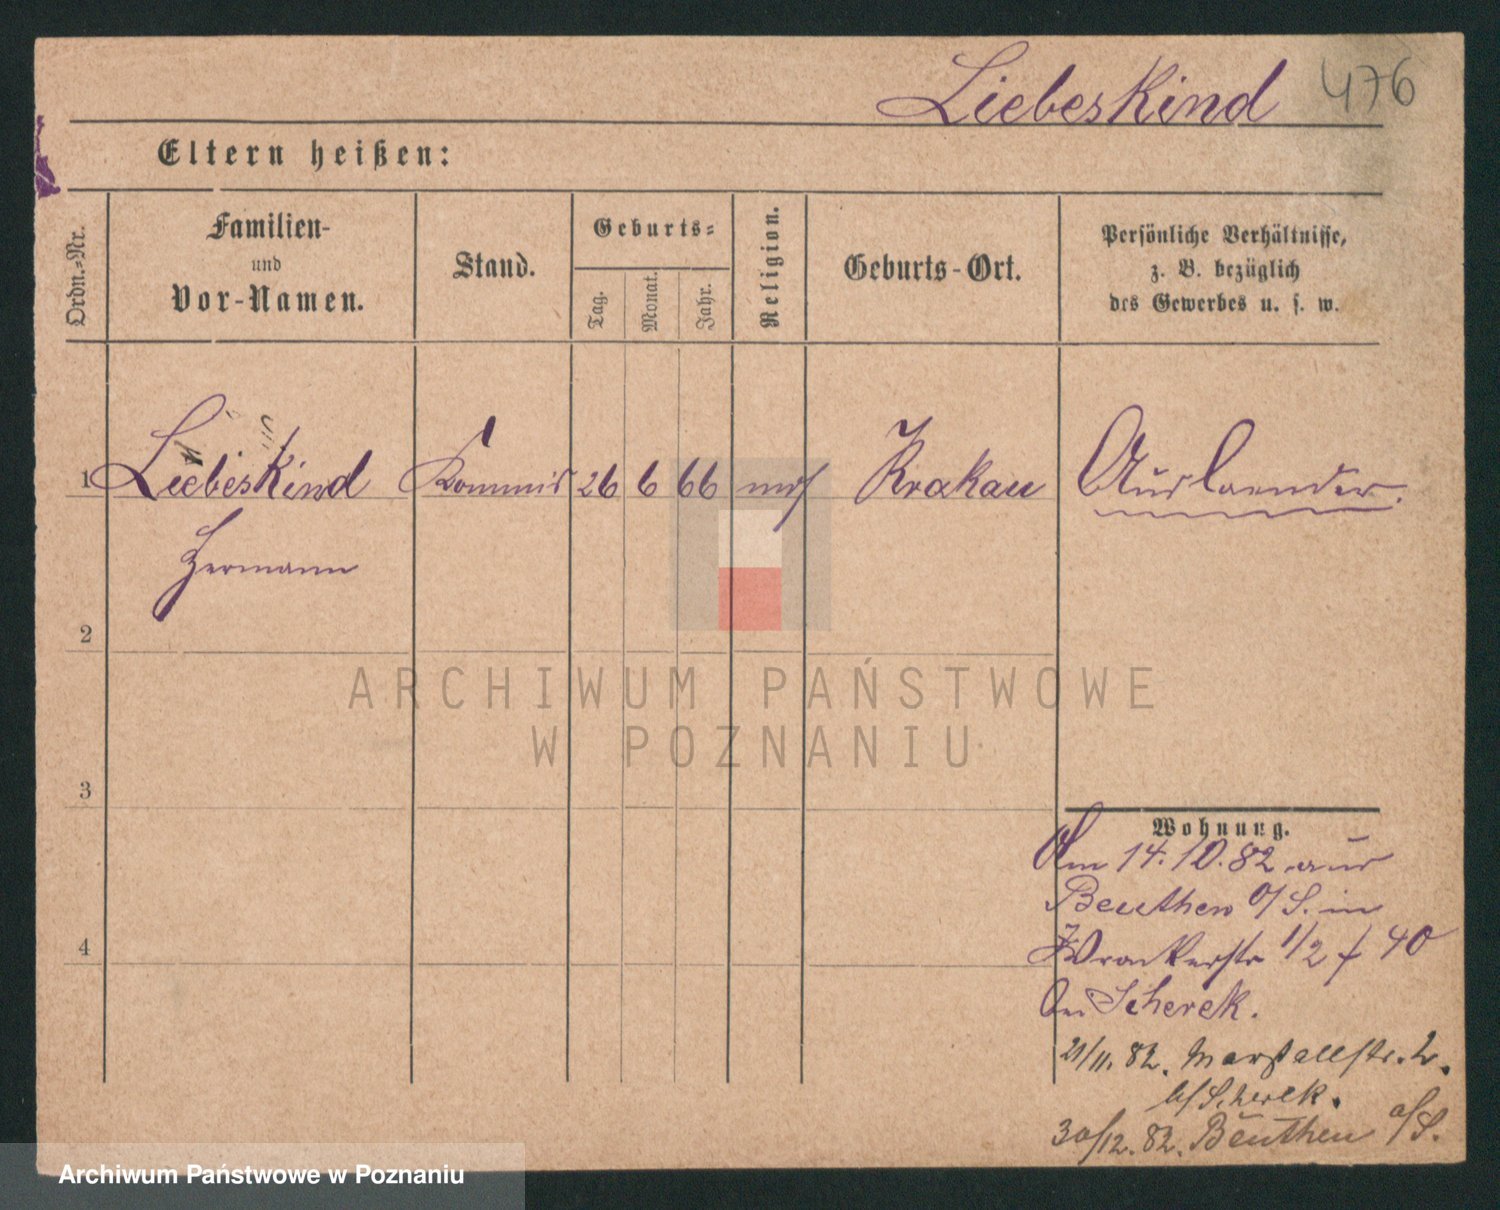 Liebeskind 476
Eltern heißen:
Ordn.-Nr.
Familien-
und
Vor-Namen.
Stand.
Geburts-
Tag.
Monat.
Jahr.
Religion.
Geburts-Ort.
Persönliche Verhältnisse,
z. B. bezüglich
des Gewerbes u. s. w.
1 Liebeskind Kommis 26 6 66 mos Krakau Auslaender.
Hermann
2
3
4
ARCHIWUM PAŃSTWOWE
W POZNANIU
Wohnung.
Am 14.10.82 aus
Beuthen o/S. in
Wronkerstr 1/2 40
Scherek.
21/11. 82. Marstallstr. 2.
b/ Scherek.
30/12. 82. Beuthen o/S.
Archiwum Państwowe w Poznaniu